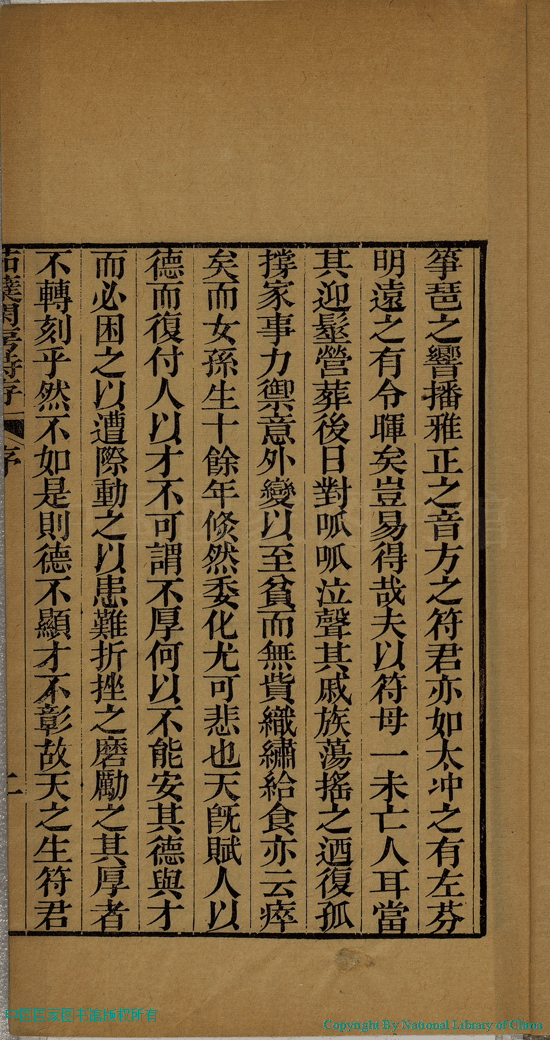 箏琶之響播雅正之音方之符君亦如太冲之有左芬
明遠之有令暉矣豈易得哉夫以符母一未亡人耳當
其迎髽營葬後日對呱呱泣聲其戚族蕩搖之迺復孤
撐家事力禦意外變以至貧而無貲織繡給食亦云瘁
矣而女孫生十餘年倏然委化尤可悲也天旣賦人以
德而復付人以才不可謂不厚何以不能安其德與才
而必困之以遭際動之以患難折挫之磨勵之其厚者
不轉刻乎然不如是則德不顯才不彰故天之生符君
序
二
中国国家图书馆版权所有
Copyright By National Library of China